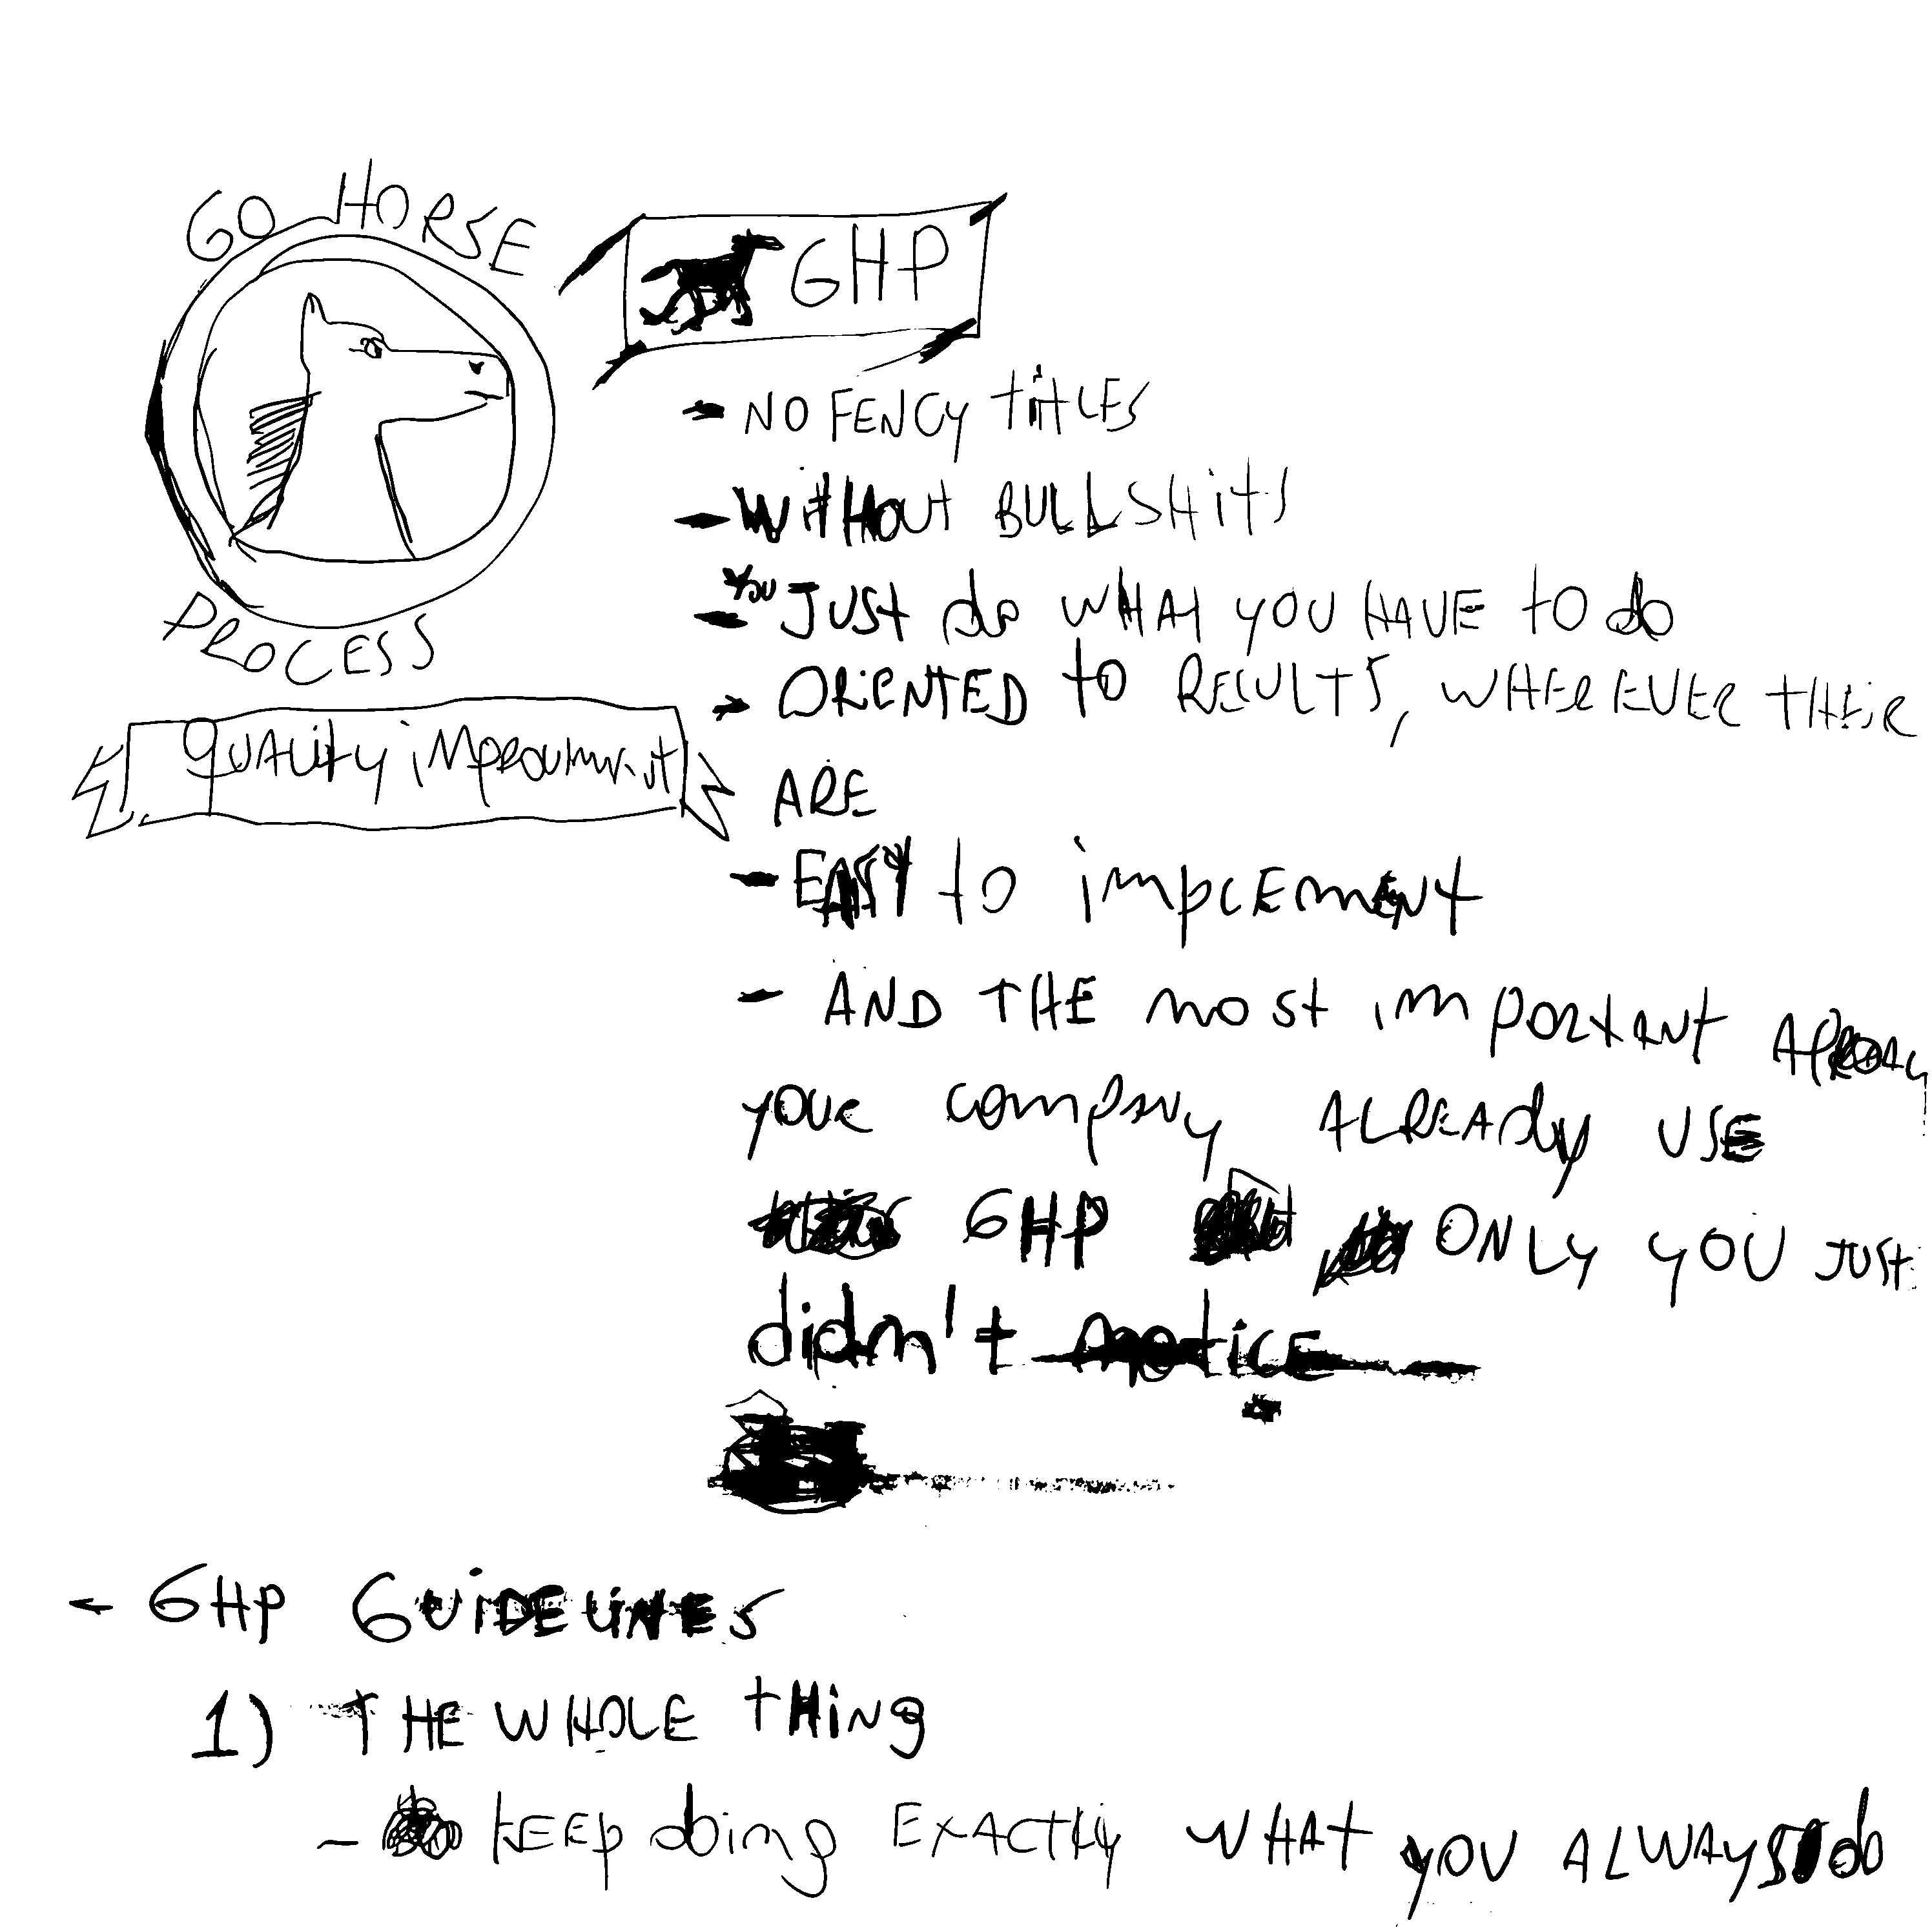 GO HORSE
PROCESS
QUALITY
GHP
- NO FENCY TITLES
- WITHOUT BULLSHITS
- YOU JUST do WHAT YOU HAVE to do
- ORIENTED to RESULTS, WHEREVER THEIR
ARE
- EASY to implement
- AND THE most important
your company ALREADY USE
GHP ONLY YOU JUST
didn't notice
- GHP GUIDELINES
1) THE WHOLE tHiNg
- KEEP doing EXACTLY WHAT YOU ALWAYS do